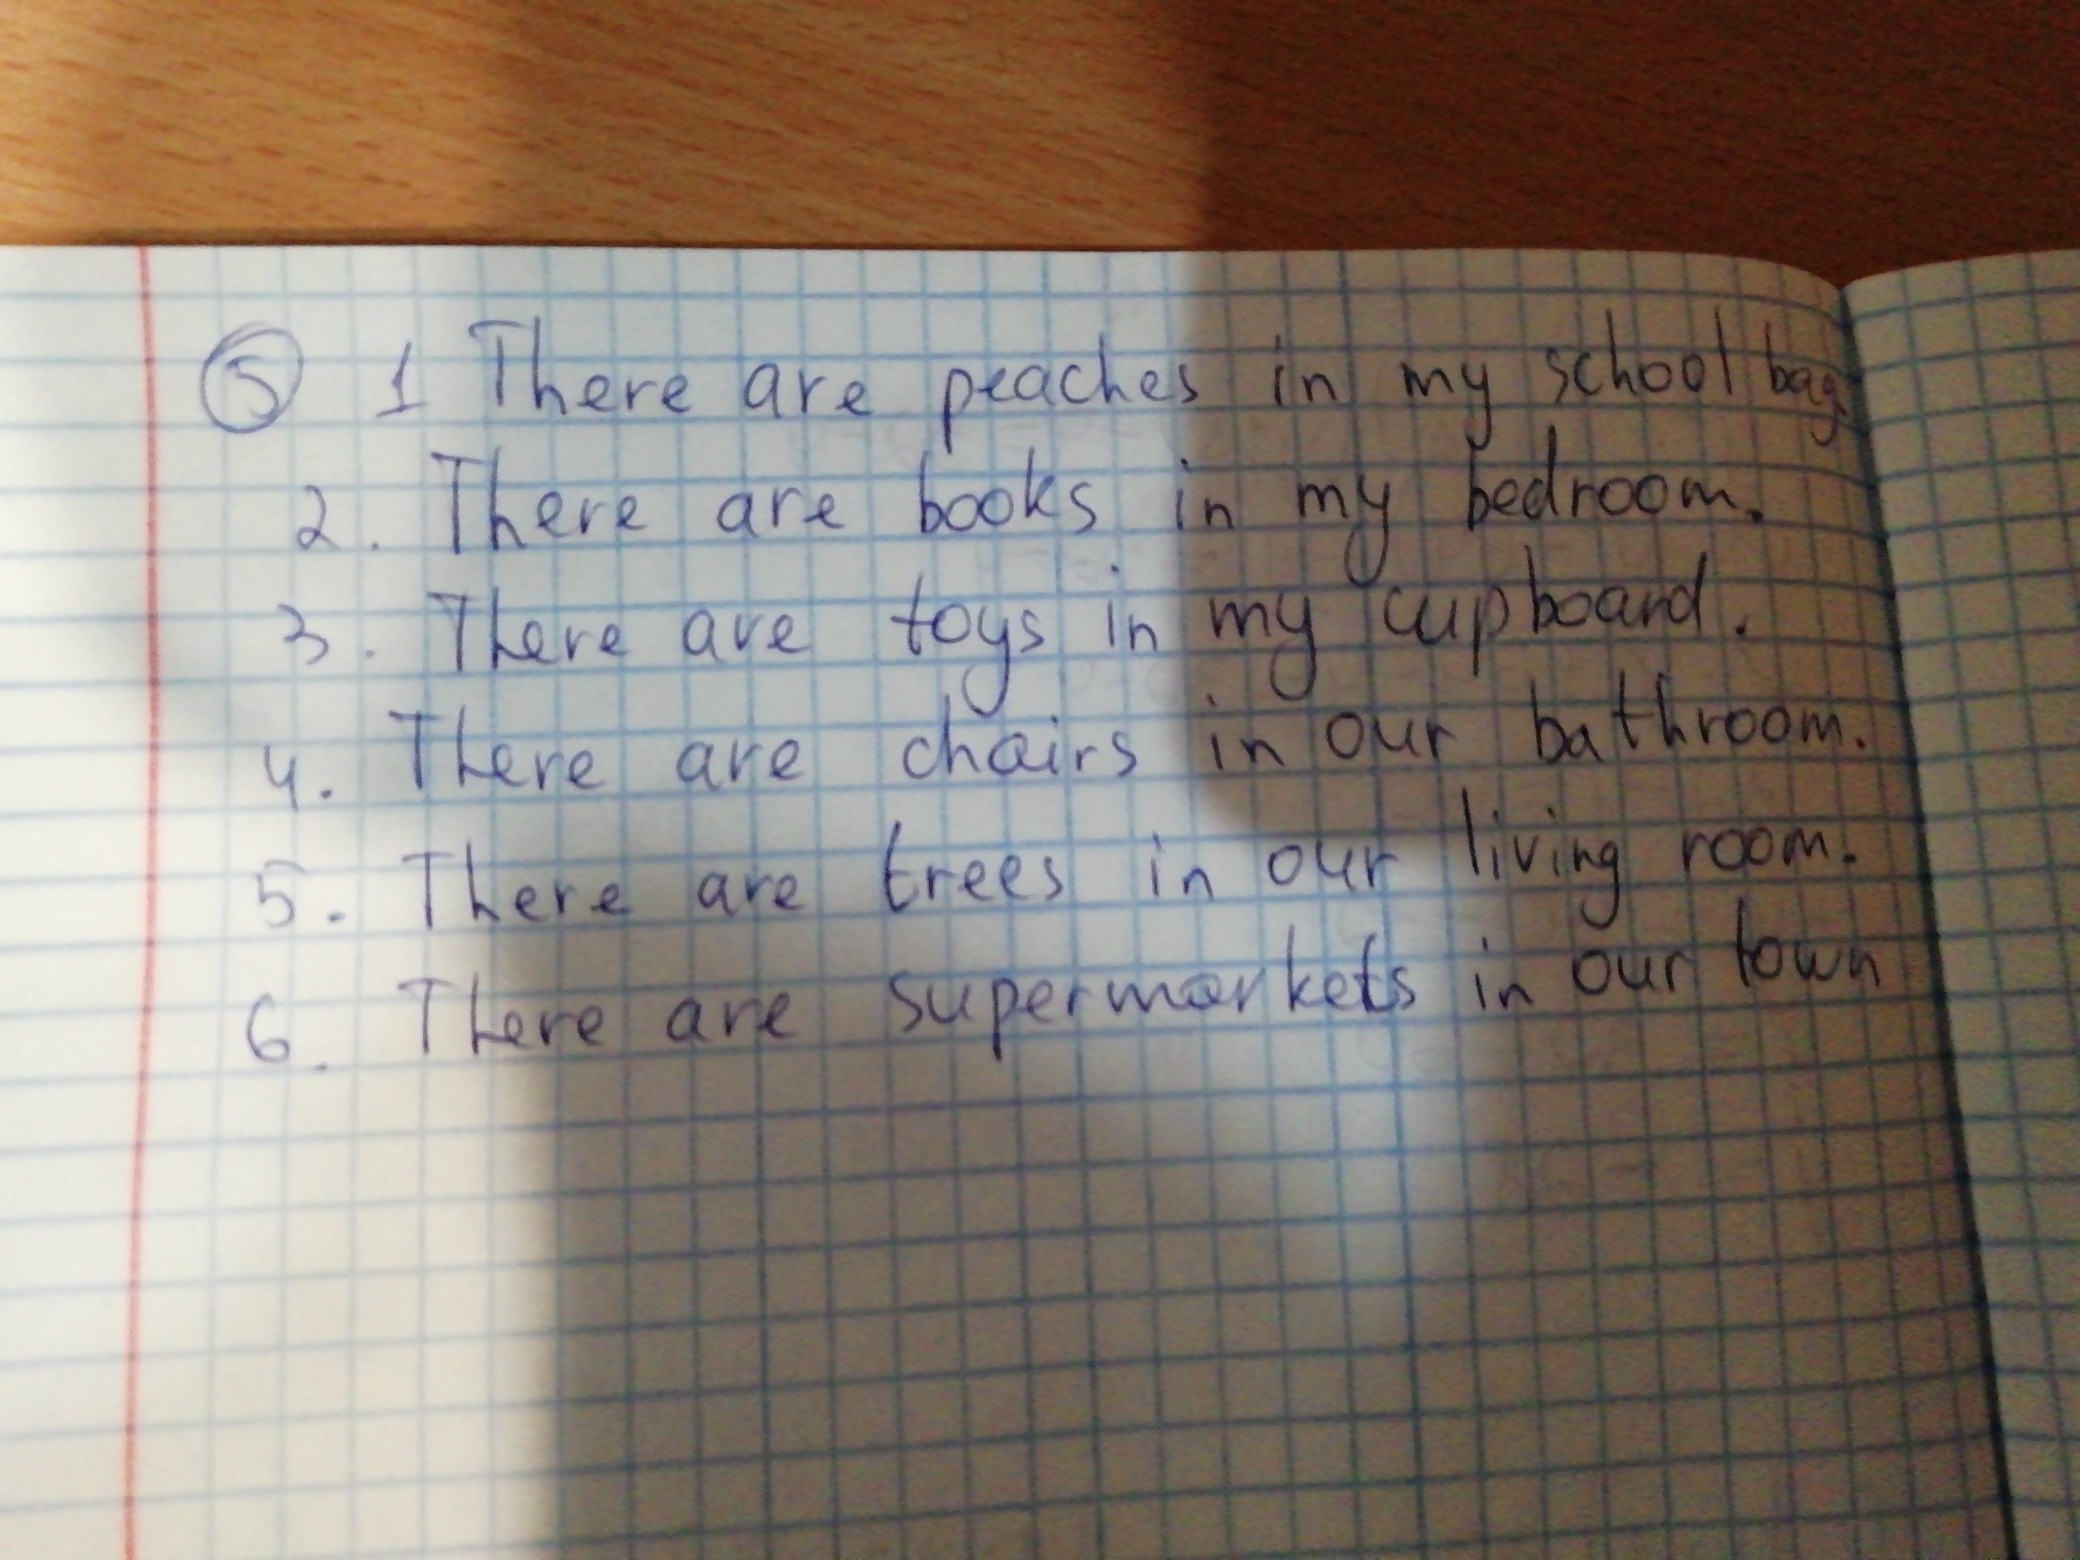 5 1 There are peaches in my school bag.
2. There are books in my bedroom.
3. There are toys in my cupboard.
4. There are chairs in our bathroom.
5. There are trees in our living room.
6. There are supermarkets in our town